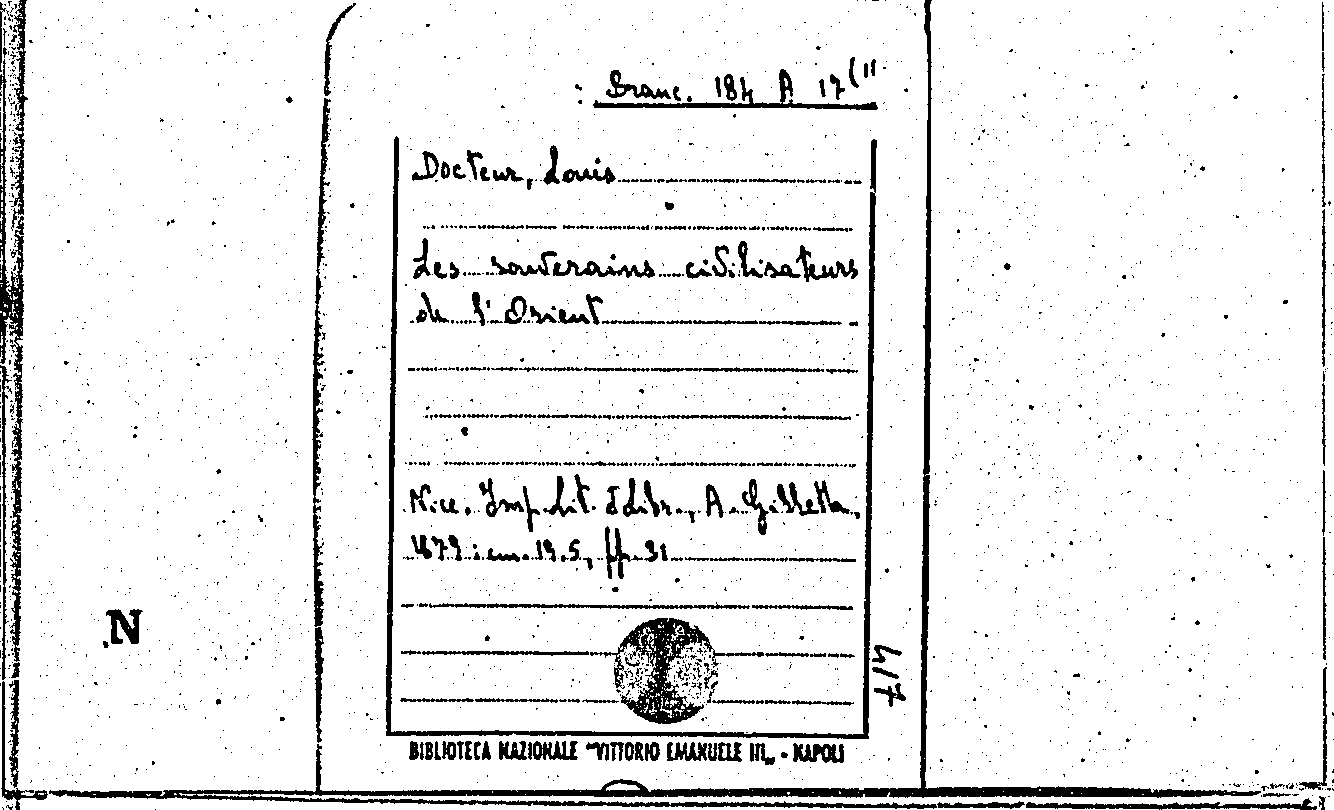 Branc. 184 A 17(11
Docteur, Louis
Les souverains civilisateurs
de l'Orient
Nice. Imp. Lit. & Libr., A. Gilletta,
1879; cm. 19.5, pp. 31
N
417
BIBLIOTECA NAZIONALE "VITTORIO EMANUELE III„ - NAPOLI